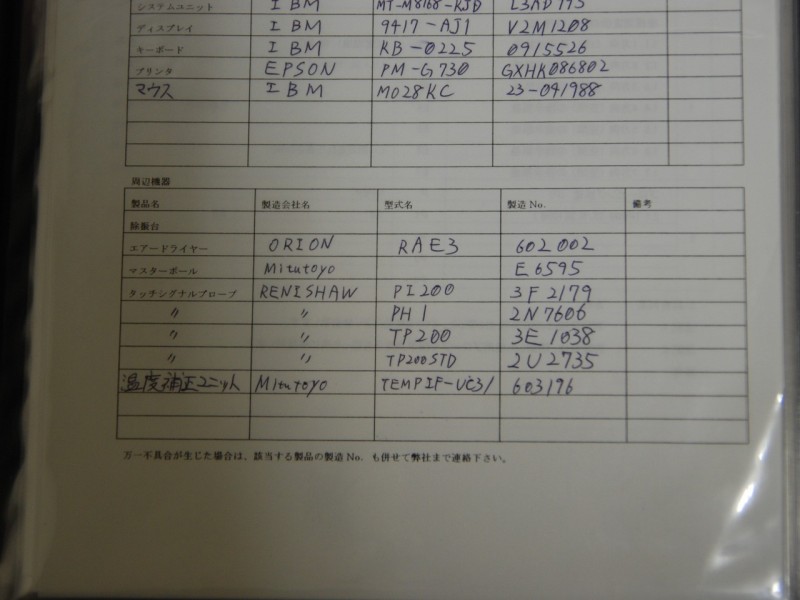 システムユニット IBM MT-M8168-KJD
ディスプレイ IBM 9417-AJ1 V2M1208
キーボード IBM KB-0225 0915526
プリンタ EPSON PM-G730 GXHK086802
マウス IBM MO28KC 23-041988
周辺機器
製品名 製造会社名 型式名 製造No. 備考
除振台
エアードライヤー ORION RAE3 602002
マスターボール Mitutoyo E6595
タッチシグナルプローブ RENISHAW PI200 3F2179
〃 〃 PH1 2N7606
〃 〃 TP200 3E1038
〃 〃 TP200STD 2U2735
温度補正ユニット Mitutoyo TEMPIF-UC31 603196
万一不具合が生じた場合は、該当する製品の製造No. も併せて弊社まで連絡下さい。